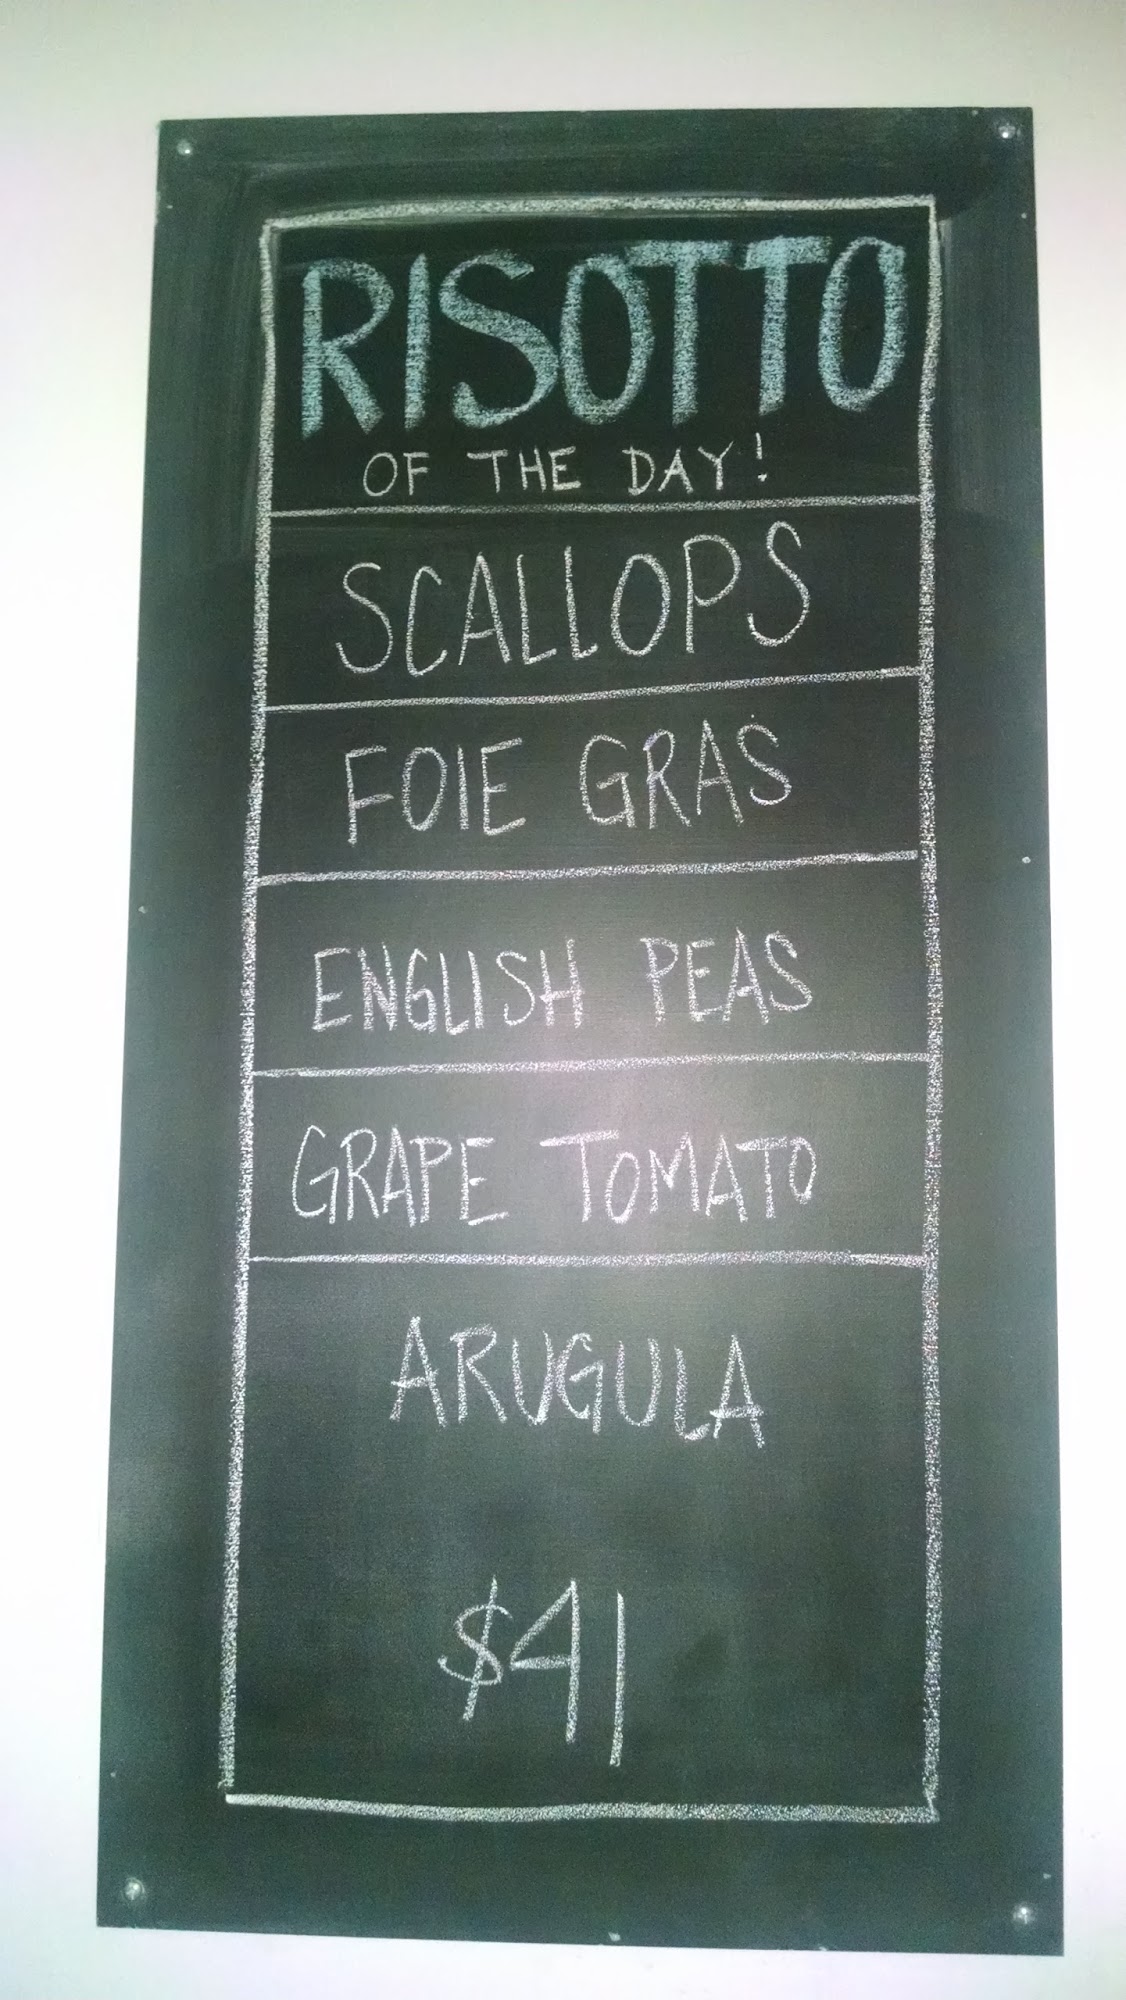 RISOTTO
OF THE DAY!
SCALLOPS
FOIE GRAS
ENGLISH PEAS
GRAPE TOMATO
ARUGULA
$41